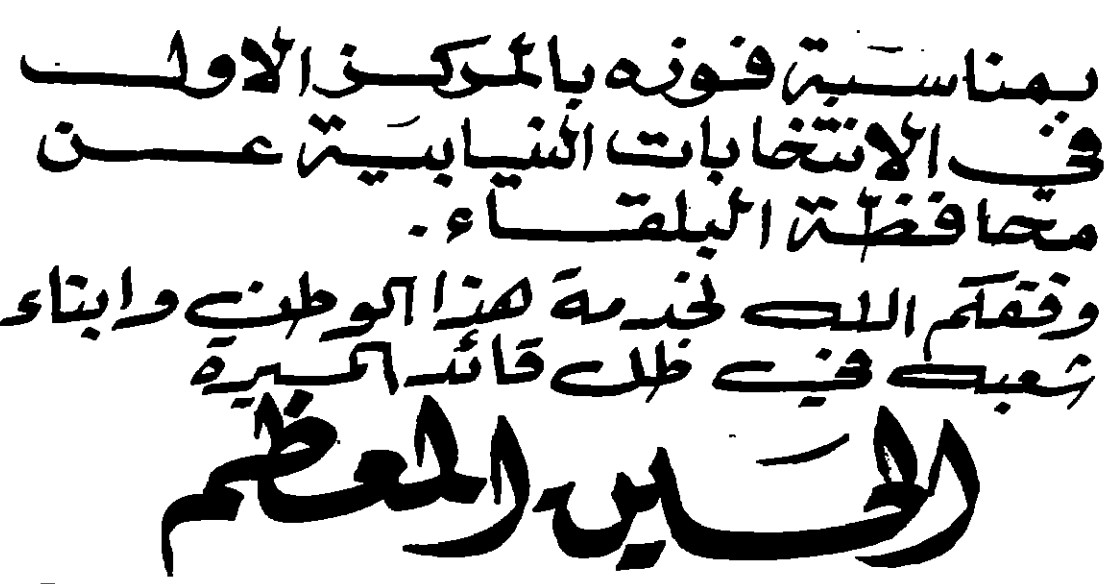 بمناسبة فوزه بالمركز الاول
في الانتخابات النيابية عن
محافظة البلقاء .
وفقكم الله لخدمة هذا الوطن وابناء
شعبه في ظل قائد المسيرة
الحسين المعظم